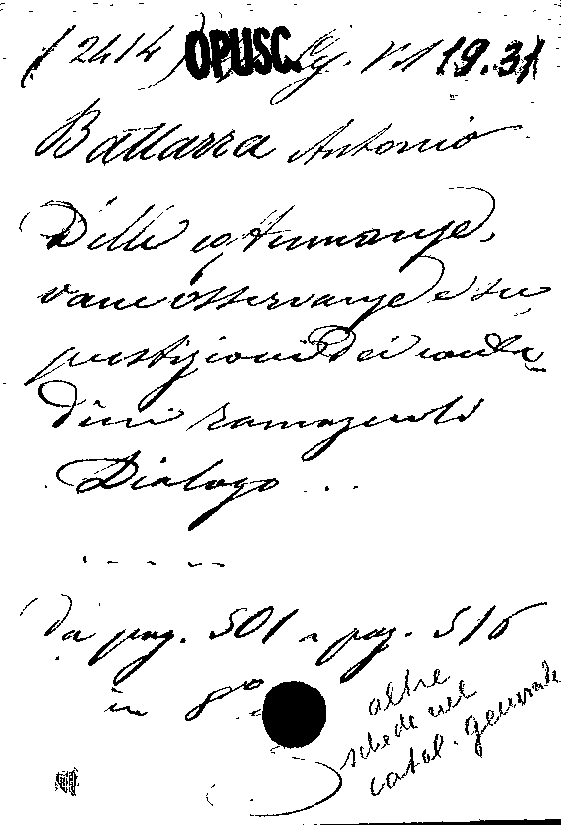 (2414) OPUSC. 19.31
Battarra Antonio
Delle costumanze,
vane osservanze e su
perstizioni dei conta
dini romagnoli
Dialogo ...
.....
Da pag. 501 a pag. 516
in 8°
altre
schede nel
catal. generale